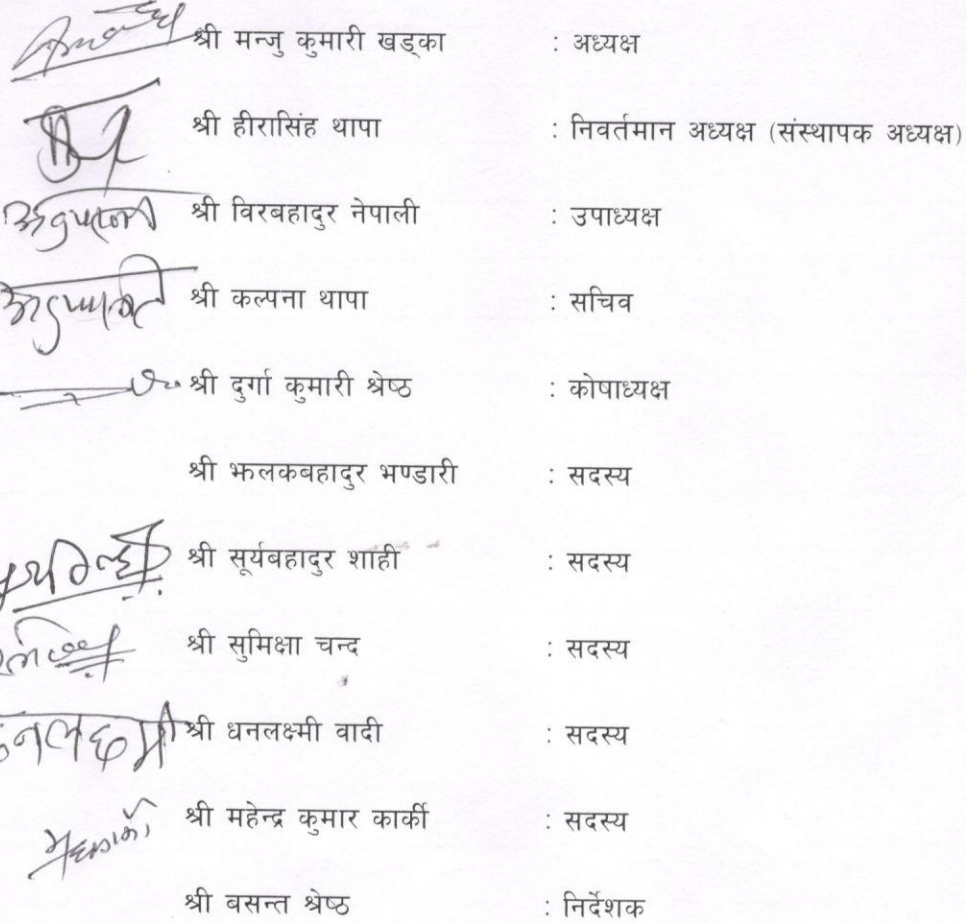 श्री मन्जु कुमारी खड्का : अध्यक्ष
श्री हीरासिंह थापा : निवर्तमान अध्यक्ष (संस्थापक अध्यक्ष)
श्री विरबहादुर नेपाली : उपाध्यक्ष
श्री कल्पना थापा : सचिव
श्री दुर्गा कुमारी श्रेष्ठ : कोषाध्यक्ष
श्री झलकबहादुर भण्डारी : सदस्य
श्री सूर्यबहादुर शाही : सदस्य
श्री सुमिक्षा चन्द : सदस्य
श्री धनलक्ष्मी वादी : सदस्य
श्री महेन्द्र कुमार कार्की : सदस्य
श्री बसन्त श्रेष्ठ : निर्देशक